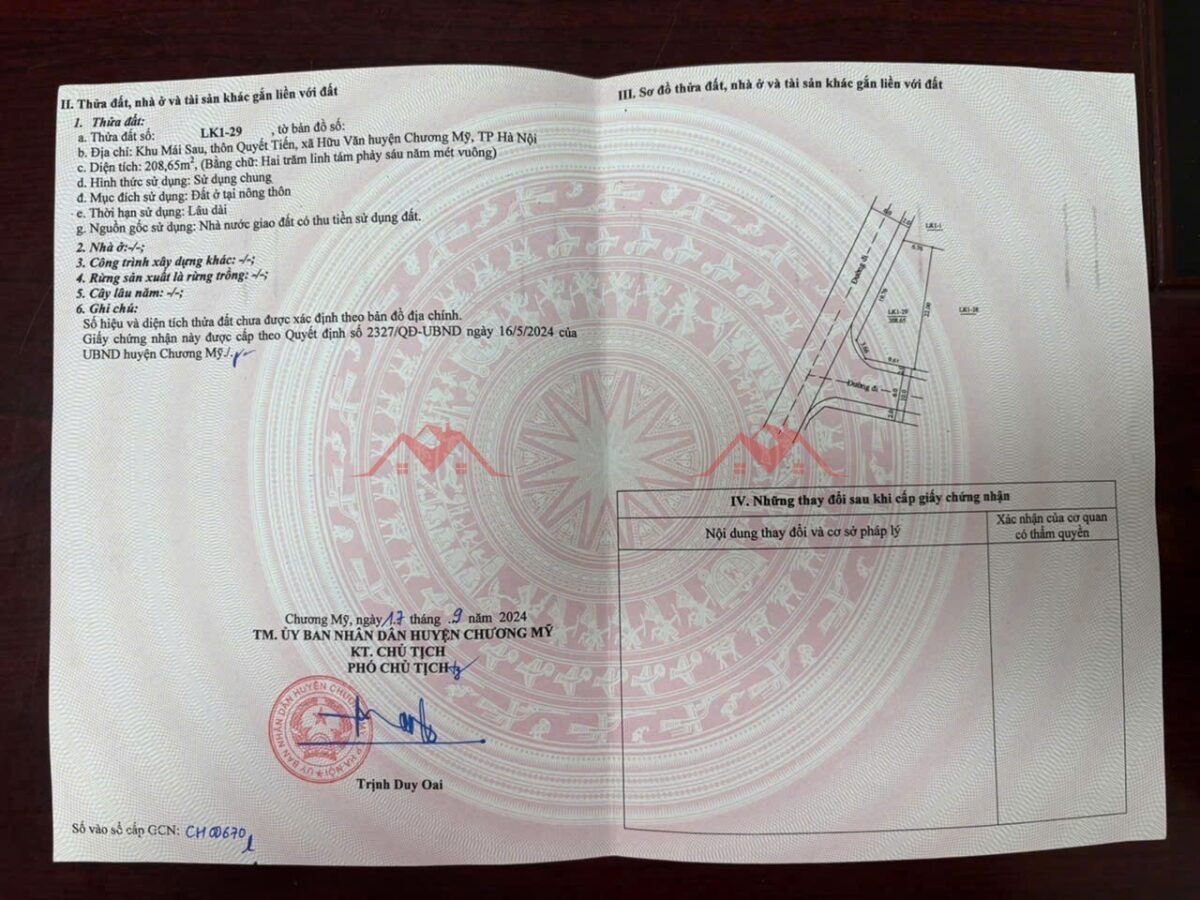 II. Thửa đất, nhà ở và tài sản khác gắn liền với đất
1. Thửa đất:
a. Thửa đất số: LK1-29 , tờ bản đồ số:
b. Địa chỉ: Khu Mái Sau, thôn Quyết Tiến, xã Hữu Văn huyện Chương Mỹ, TP Hà Nội
c. Diện tích: 208,65m², (Bằng chữ: Hai trăm linh tám phảy sáu năm mét vuông)
d. Hình thức sử dụng: Sử dụng chung
đ. Mục đích sử dụng: Đất ở tại nông thôn
e. Thời hạn sử dụng: Lâu dài
g. Nguồn gốc sử dụng: Nhà nước giao đất có thu tiền sử dụng đất.
2. Nhà ở:-/-;
3. Công trình xây dựng khác: -/-;
4. Rừng sản xuất là rừng trồng: -/-;
5. Cây lâu năm: -/-;
6. Ghi chú:
Số hiệu và diện tích thửa đất chưa được xác định theo bản đồ địa chính.
Giấy chứng nhận này được cấp theo Quyết định số 2327/QĐ-UBND ngày 16/5/2024 của
UBND huyện Chương Mỹ./.
Chương Mỹ, ngày 17 tháng 9 năm 2024
TM. ỦY BAN NHÂN DÂN HUYỆN CHƯƠNG MỸ
KT. CHỦ TỊCH
PHÓ CHỦ TỊCH
Trịnh Duy Oai
Số vào sổ cấp GCN: CH00670
III. Sơ đồ thửa đất, nhà ở và tài sản khác gắn liền với đất
LK1-1
6.36
Đường đi
19.76
22.00
LK1-29
208.65
LK1-28
9.61
Đường đi
6.0
10.0
2.0
IV. Những thay đổi sau khi cấp giấy chứng nhận
Nội dung thay đổi và cơ sở pháp lý
Xác nhận của cơ quan
có thẩm quyền